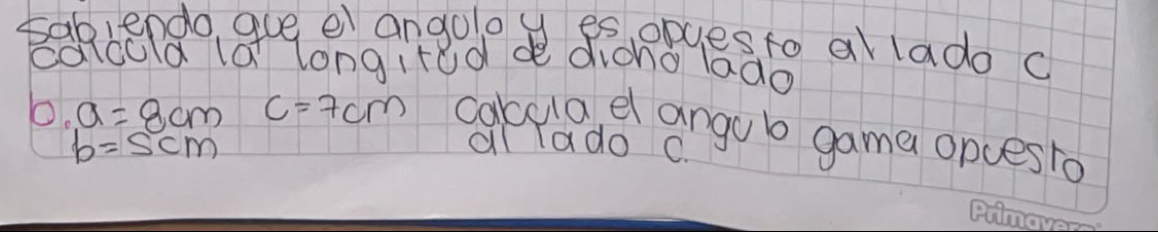 sabiendo que el angulo y es opuesto al lado c
calcula la longitud de dicho lado
b. a=8cm c=7cm calcula el angulo gama opuesto
b=5cm al lado c.
Primavera